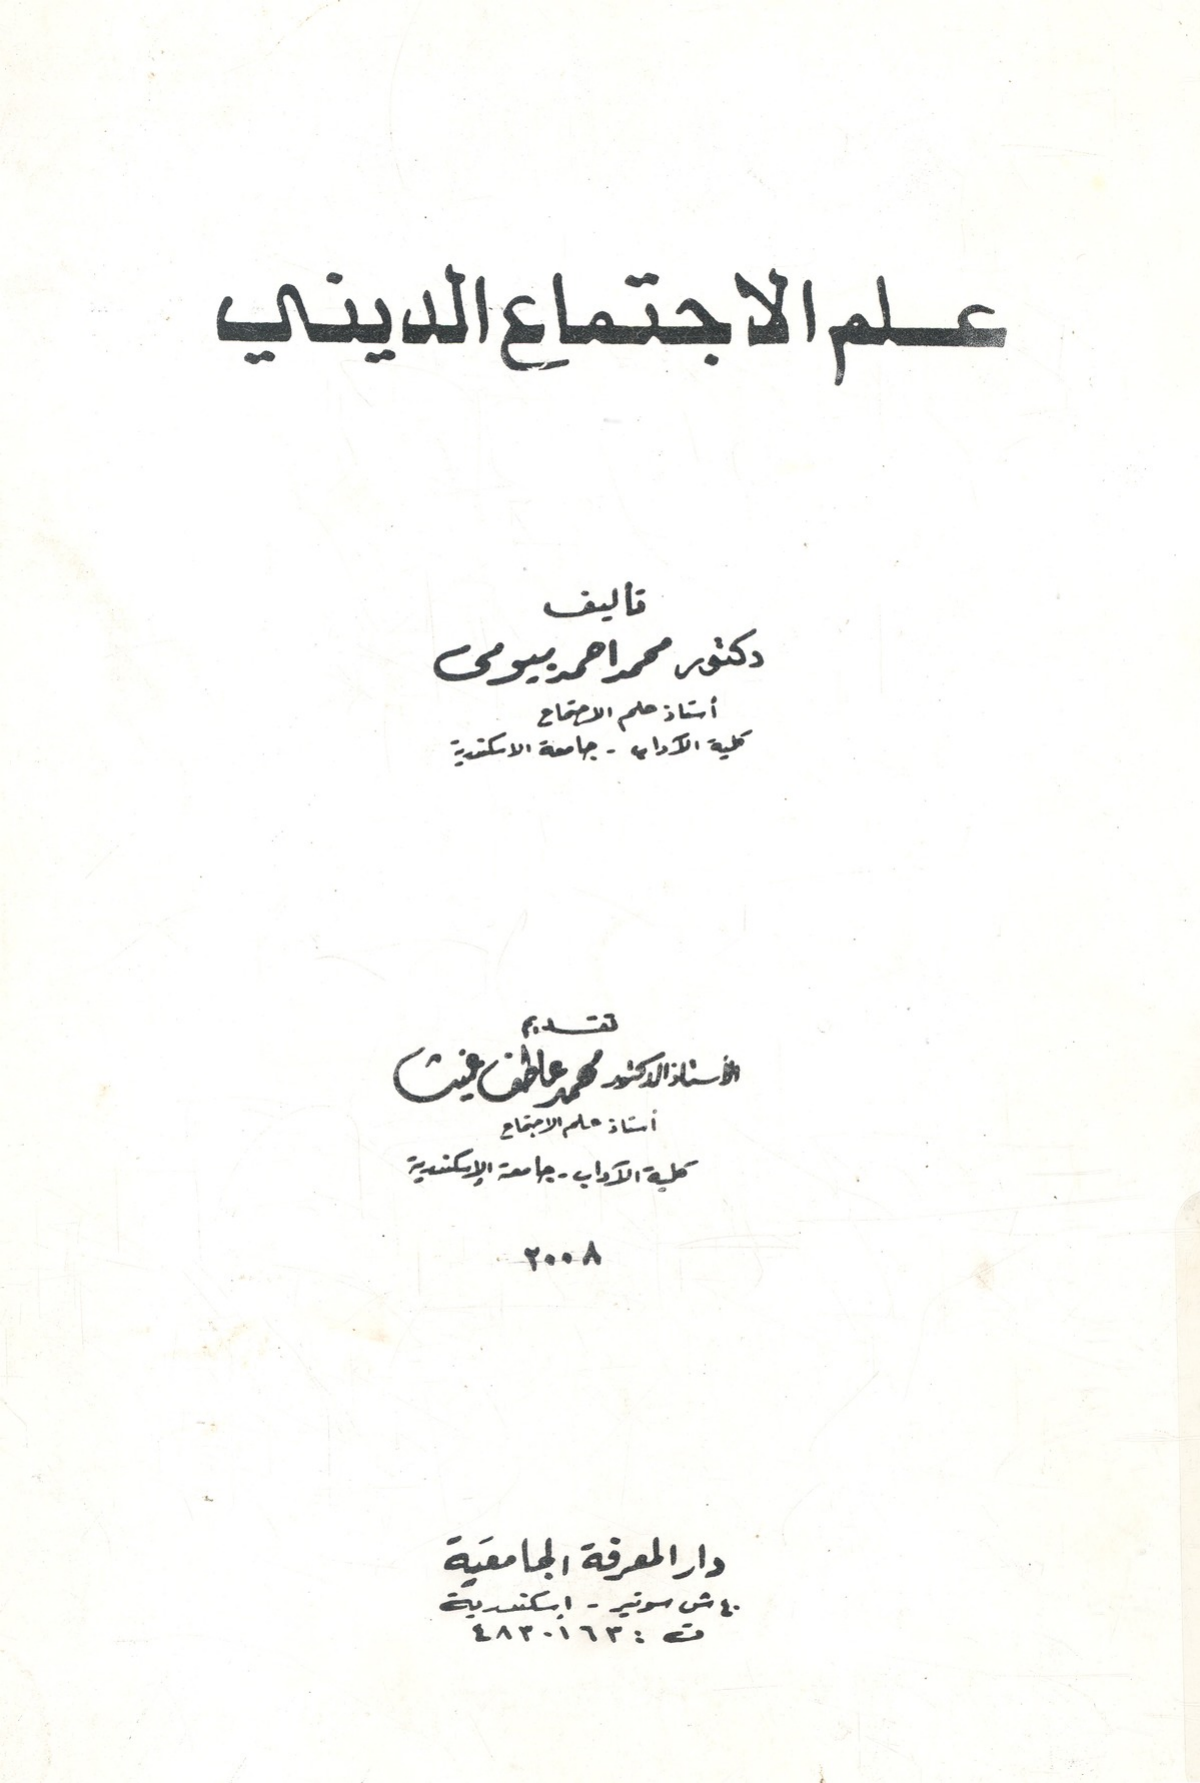 علم الاجتماع الديني
تأليف
دكتور محمد احمد بيومى
أستاذ علم الاجتماع
كلية الآداب - جامعة الاسكندرية
تقديم
الأستاذ الدكتور محمد عاطف غيث
أستاذ علم الاجتماع
كلية الآداب - جامعة الإسكندرية
٢٠٠٨
دار المعرفة الجامعية
٤٠ ش سوتير - إسكندرية
ت : ٤٨٣٠١٦٣